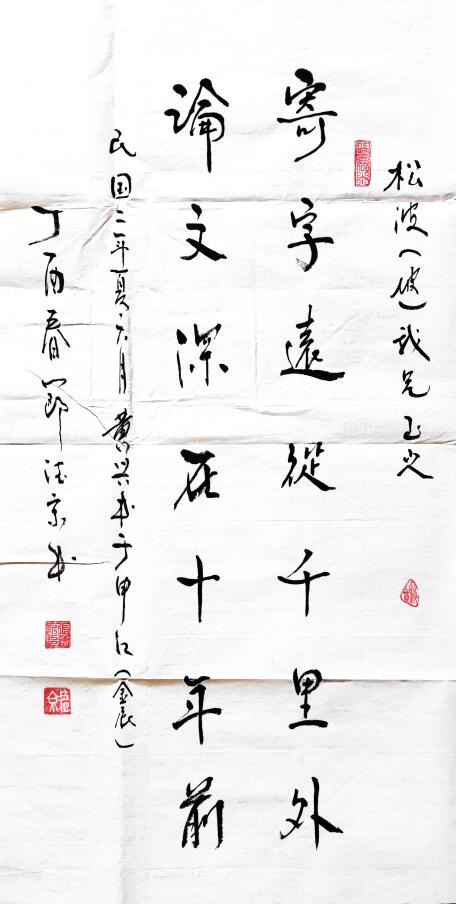 松波（坡）我兄正步
寄字遠從千里外
論文深在十年前
民国二年夏六月黄兴书于申江（金辰）
丁酉春节德京书